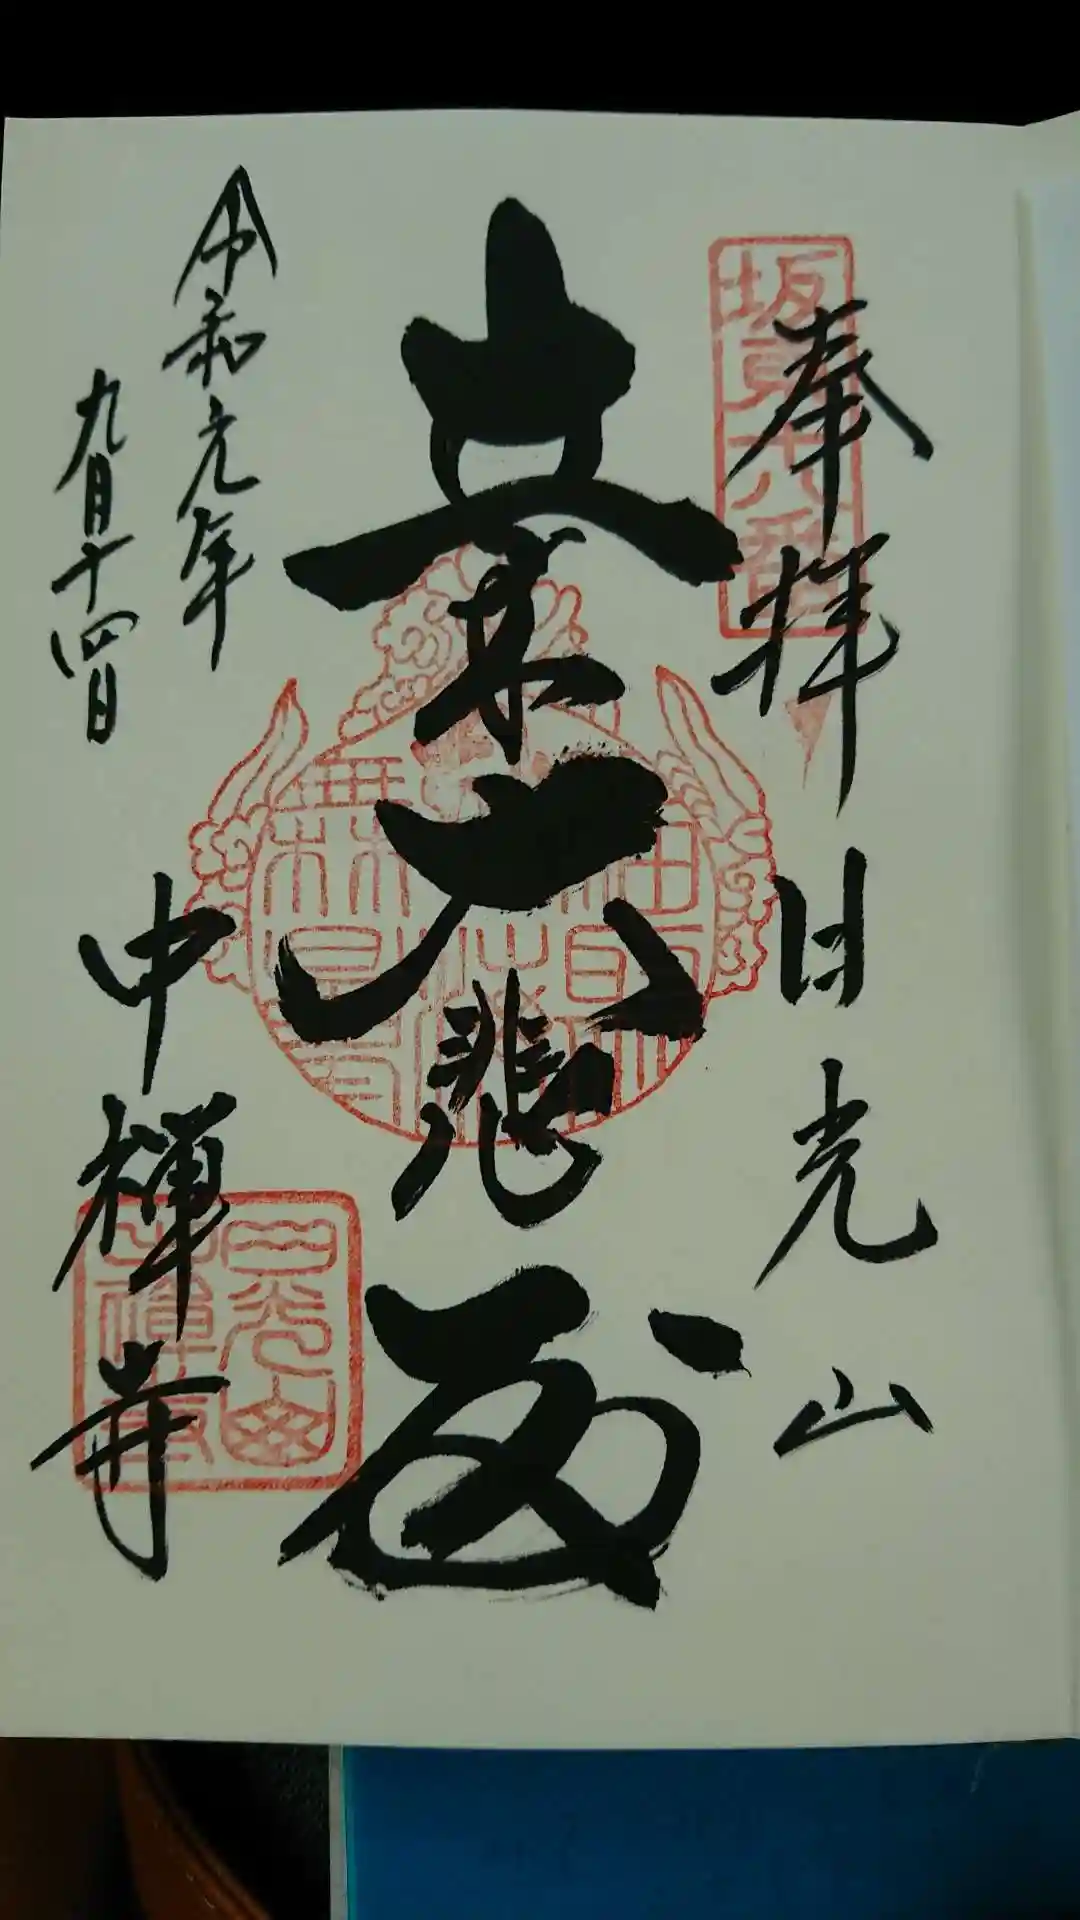 奉拝 日光山
坂東十八番
大悲殿
令和元年
九月十四日
中禅寺
日光山
中禅寺